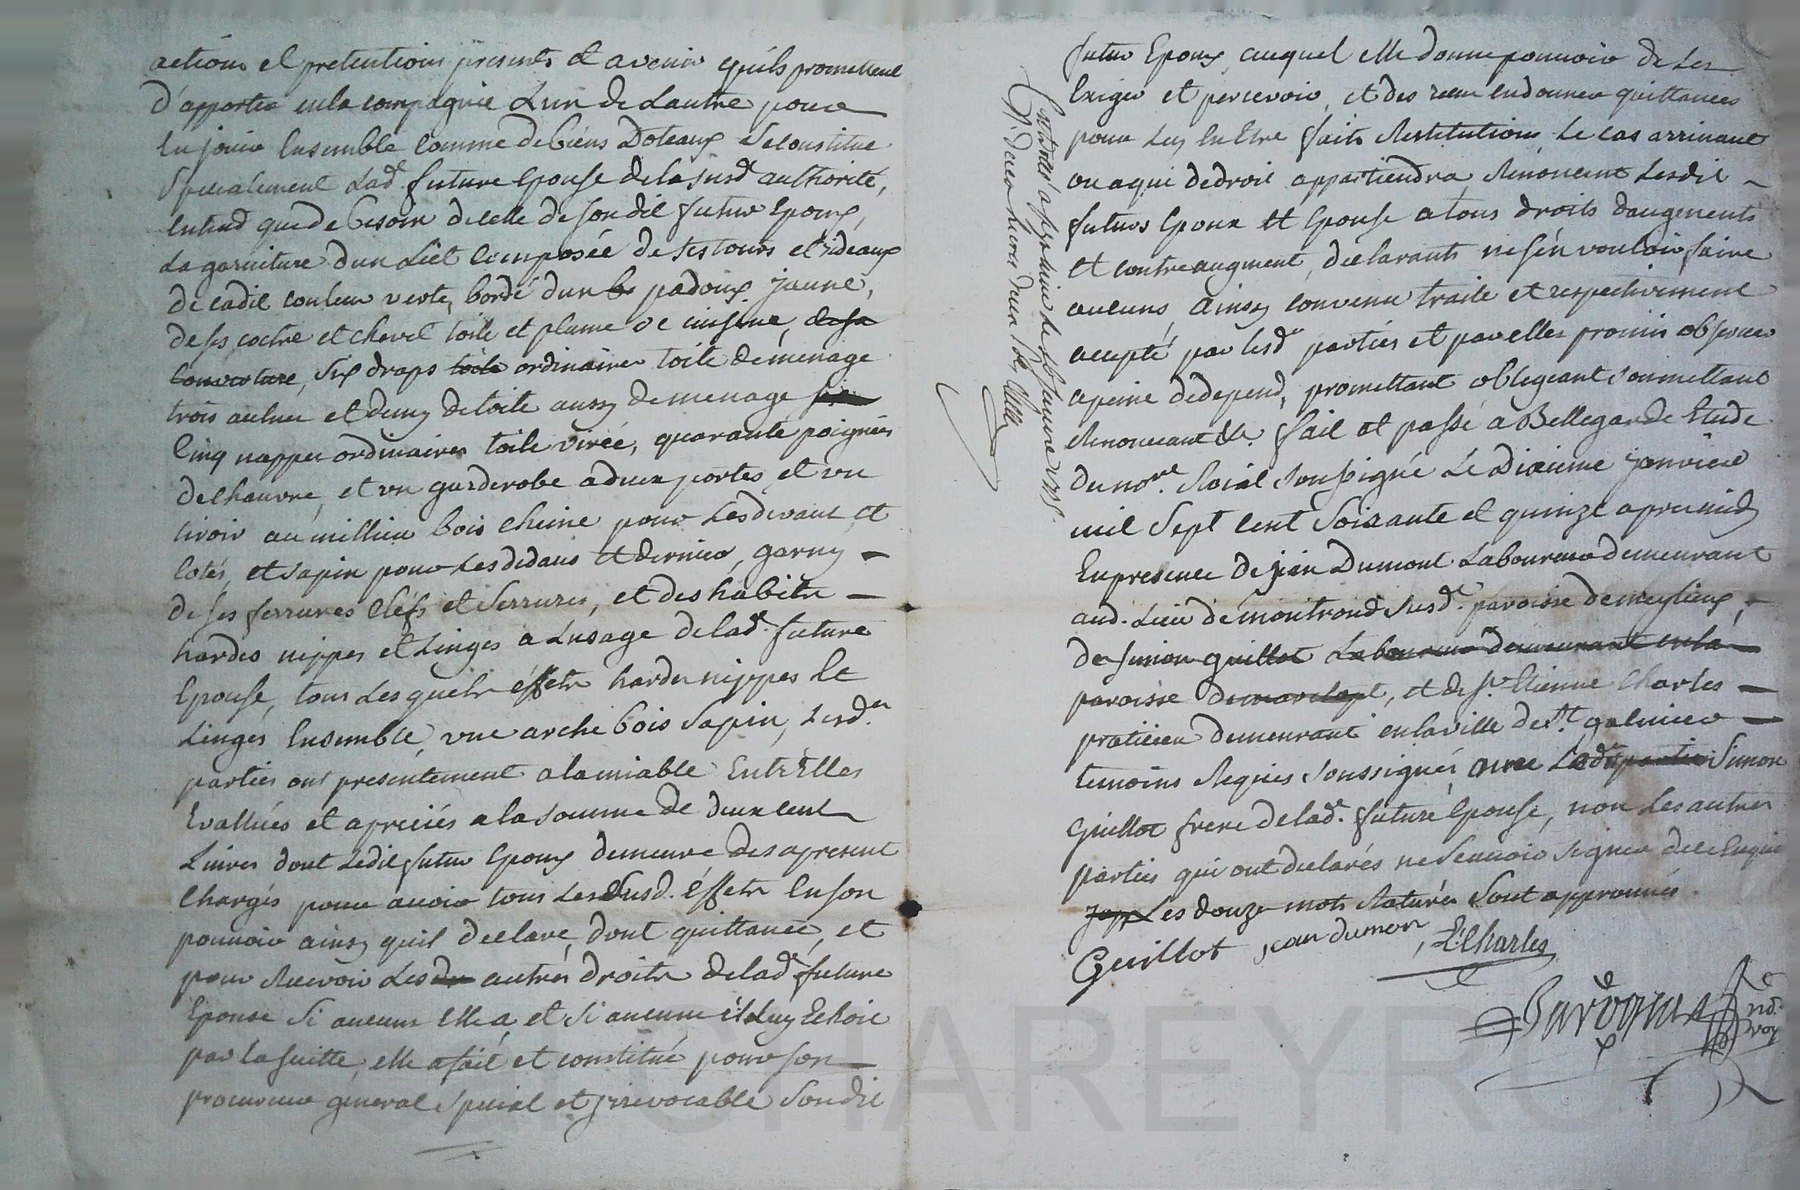 actions et pretentions presents et avenir quils promettent
d'apporter en la compagnie Lun de Lautre pour
En jouir Ensemble Comme de biens Doteaux Se constitue
Specialement Lad. future Epouse de la susd. authorité,
entend que de besoin de celle de son dit futur Epoux,
La garniture d'un Lict composée de ses tours et rideaux
de cadit couleur verte, bordé d'un padoux jaune,
de ses coctre et chevet toile et plume de cuisine, de sa
Couverture, six draps toile ordinaires toile de menage
trois aulnes et demy de toile aussy de menage
Cinq nappes ordinaires toile virée, quarante poignées
de chanvre, et un garderobe a deux portes et un
tiroir au millieu bois cheine pour Les devant et
Cotés, et sapin pour Les dedans et dernier, garny
de ses ferrures Clefs et Serrures, et des habits
hardes nippes et Linges a Lusage de lad. future
Epouse, tous Les quels éffets hardes nippes et
Linges Ensemble, une arche bois Sapin, Lesd.
parties ont presentement a lamiable Entr'Elles
Evallués et apreciés a la somme de deux cent
Livres dont Ledit futur Epoux demeure des apresent
Chargés pour avoir tous Les Susd. éffets En son
pouvoir ainsy quil declare, dont quittance, et
pour recevoir Les autres droits de lad. future
Epouse Si aucuns Elle a, et Si aucuns il Luy Echoit
par la Suitte, elle a fait et constitué pour son
procureur general Special et irrevocable Son dit
futur Epoux, auquel elle donne pouvoir de Les
Exiger et percevoir, et des reçus En donner quittances
pour Luy En Etre faits Restitution, Le cas arrivant
ou a qui de droit appartiendra, Renoncent Lesdit
futurs Epoux et Epouse a tous droits daugments
et contreaugment, déclarants ne s'en vouloir faire
aucuns Ainsy convenu traité et respectivement
accepté par lesd. parties et par elles promis observer
a peine de depend, promettant obligeant Soumettant
Renonceant &c. fait et passé a Bellegarde Etude
du no.re Roial Soussigné Le Dixieme janvier
mil Sept Cent Soixante et quinze apres midy
En presence de jean Dumont Laboureur demeurant
aud. Lieu de montrond susd. paroisse de meylieux,
de simon guillot Laboureur demeurant en la
paroisse de marclopt, et de Sr. Etienne Charles
praticien demeurant en la ville de St. galmier
temoins Requis Soussignés avec Lad. partie Simon
Guillot frere de lad. future Epouse, non Les autres
parties qui ont declarés ne Scavoir Signer de ce Enquis
Les douze mots Raturés Sont approuvés.
Guillot jean dumon, E Charles